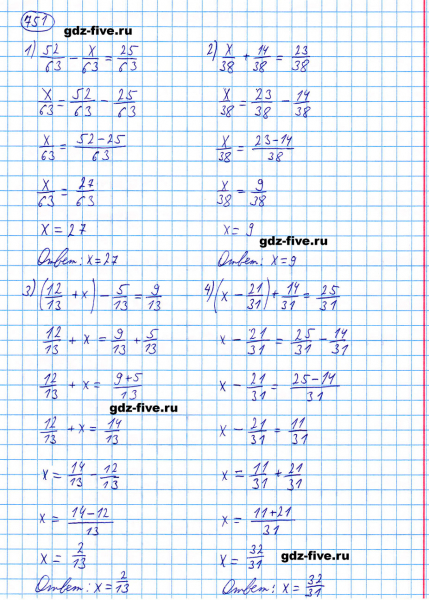 751
gdz-five.ru
1) 52/63 - x/63 = 25/63
x/63 = 52/63 - 25/63
x/63 = (52-25)/63
x/63 = 27/63
x = 27
Ответ: x = 27
2) x/38 + 14/38 = 23/38
x/38 = 23/38 - 14/38
x/38 = (23-14)/38
x/38 = 9/38
x = 9
gdz-five.ru
Ответ: x = 9
3) (12/13 + x) - 5/13 = 9/13
12/13 + x = 9/13 + 5/13
12/13 + x = (9+5)/13
gdz-five.ru
12/13 + x = 14/13
x = 14/13 - 12/13
x = (14-12)/13
x = 2/13
Ответ: x = 2/13
4) (x - 21/31) + 14/31 = 25/31
x - 21/31 = 25/31 - 14/31
x - 21/31 = (25-14)/31
x - 21/31 = 11/31
x = 11/31 + 21/31
x = (11+21)/31
x = 32/31
gdz-five.ru
Ответ: x = 32/31